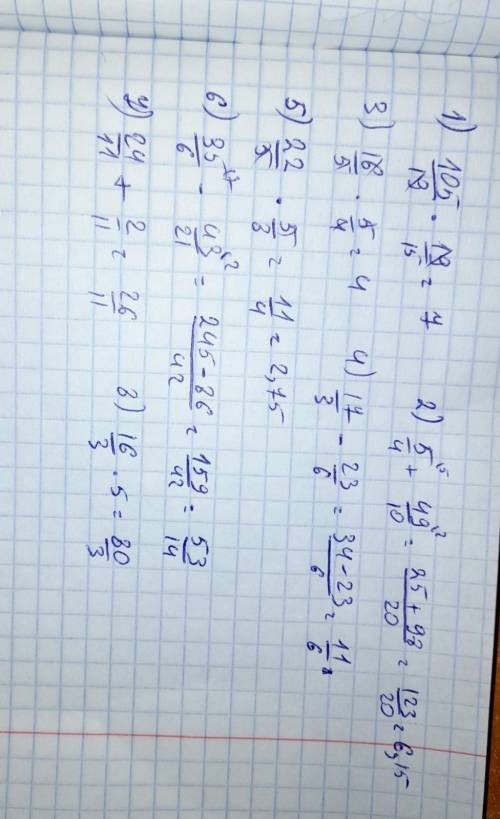 1) 105/12 · 12/15 = 7 2) 5/4 + 49/10 = (25+98)/20 = 123/20 = 6,15
3) 16/5 · 5/4 = 4 4) 17/3 - 23/6 = (34-23)/6 = 11/6
5) 22/5 · 5/8 = 11/4 = 2,75
6) 35/6 - 43/21 = (245-86)/42 = 159/42 = 53/14
7) 24/11 + 2/11 = 26/11 8) 16/3 · 5 = 80/3